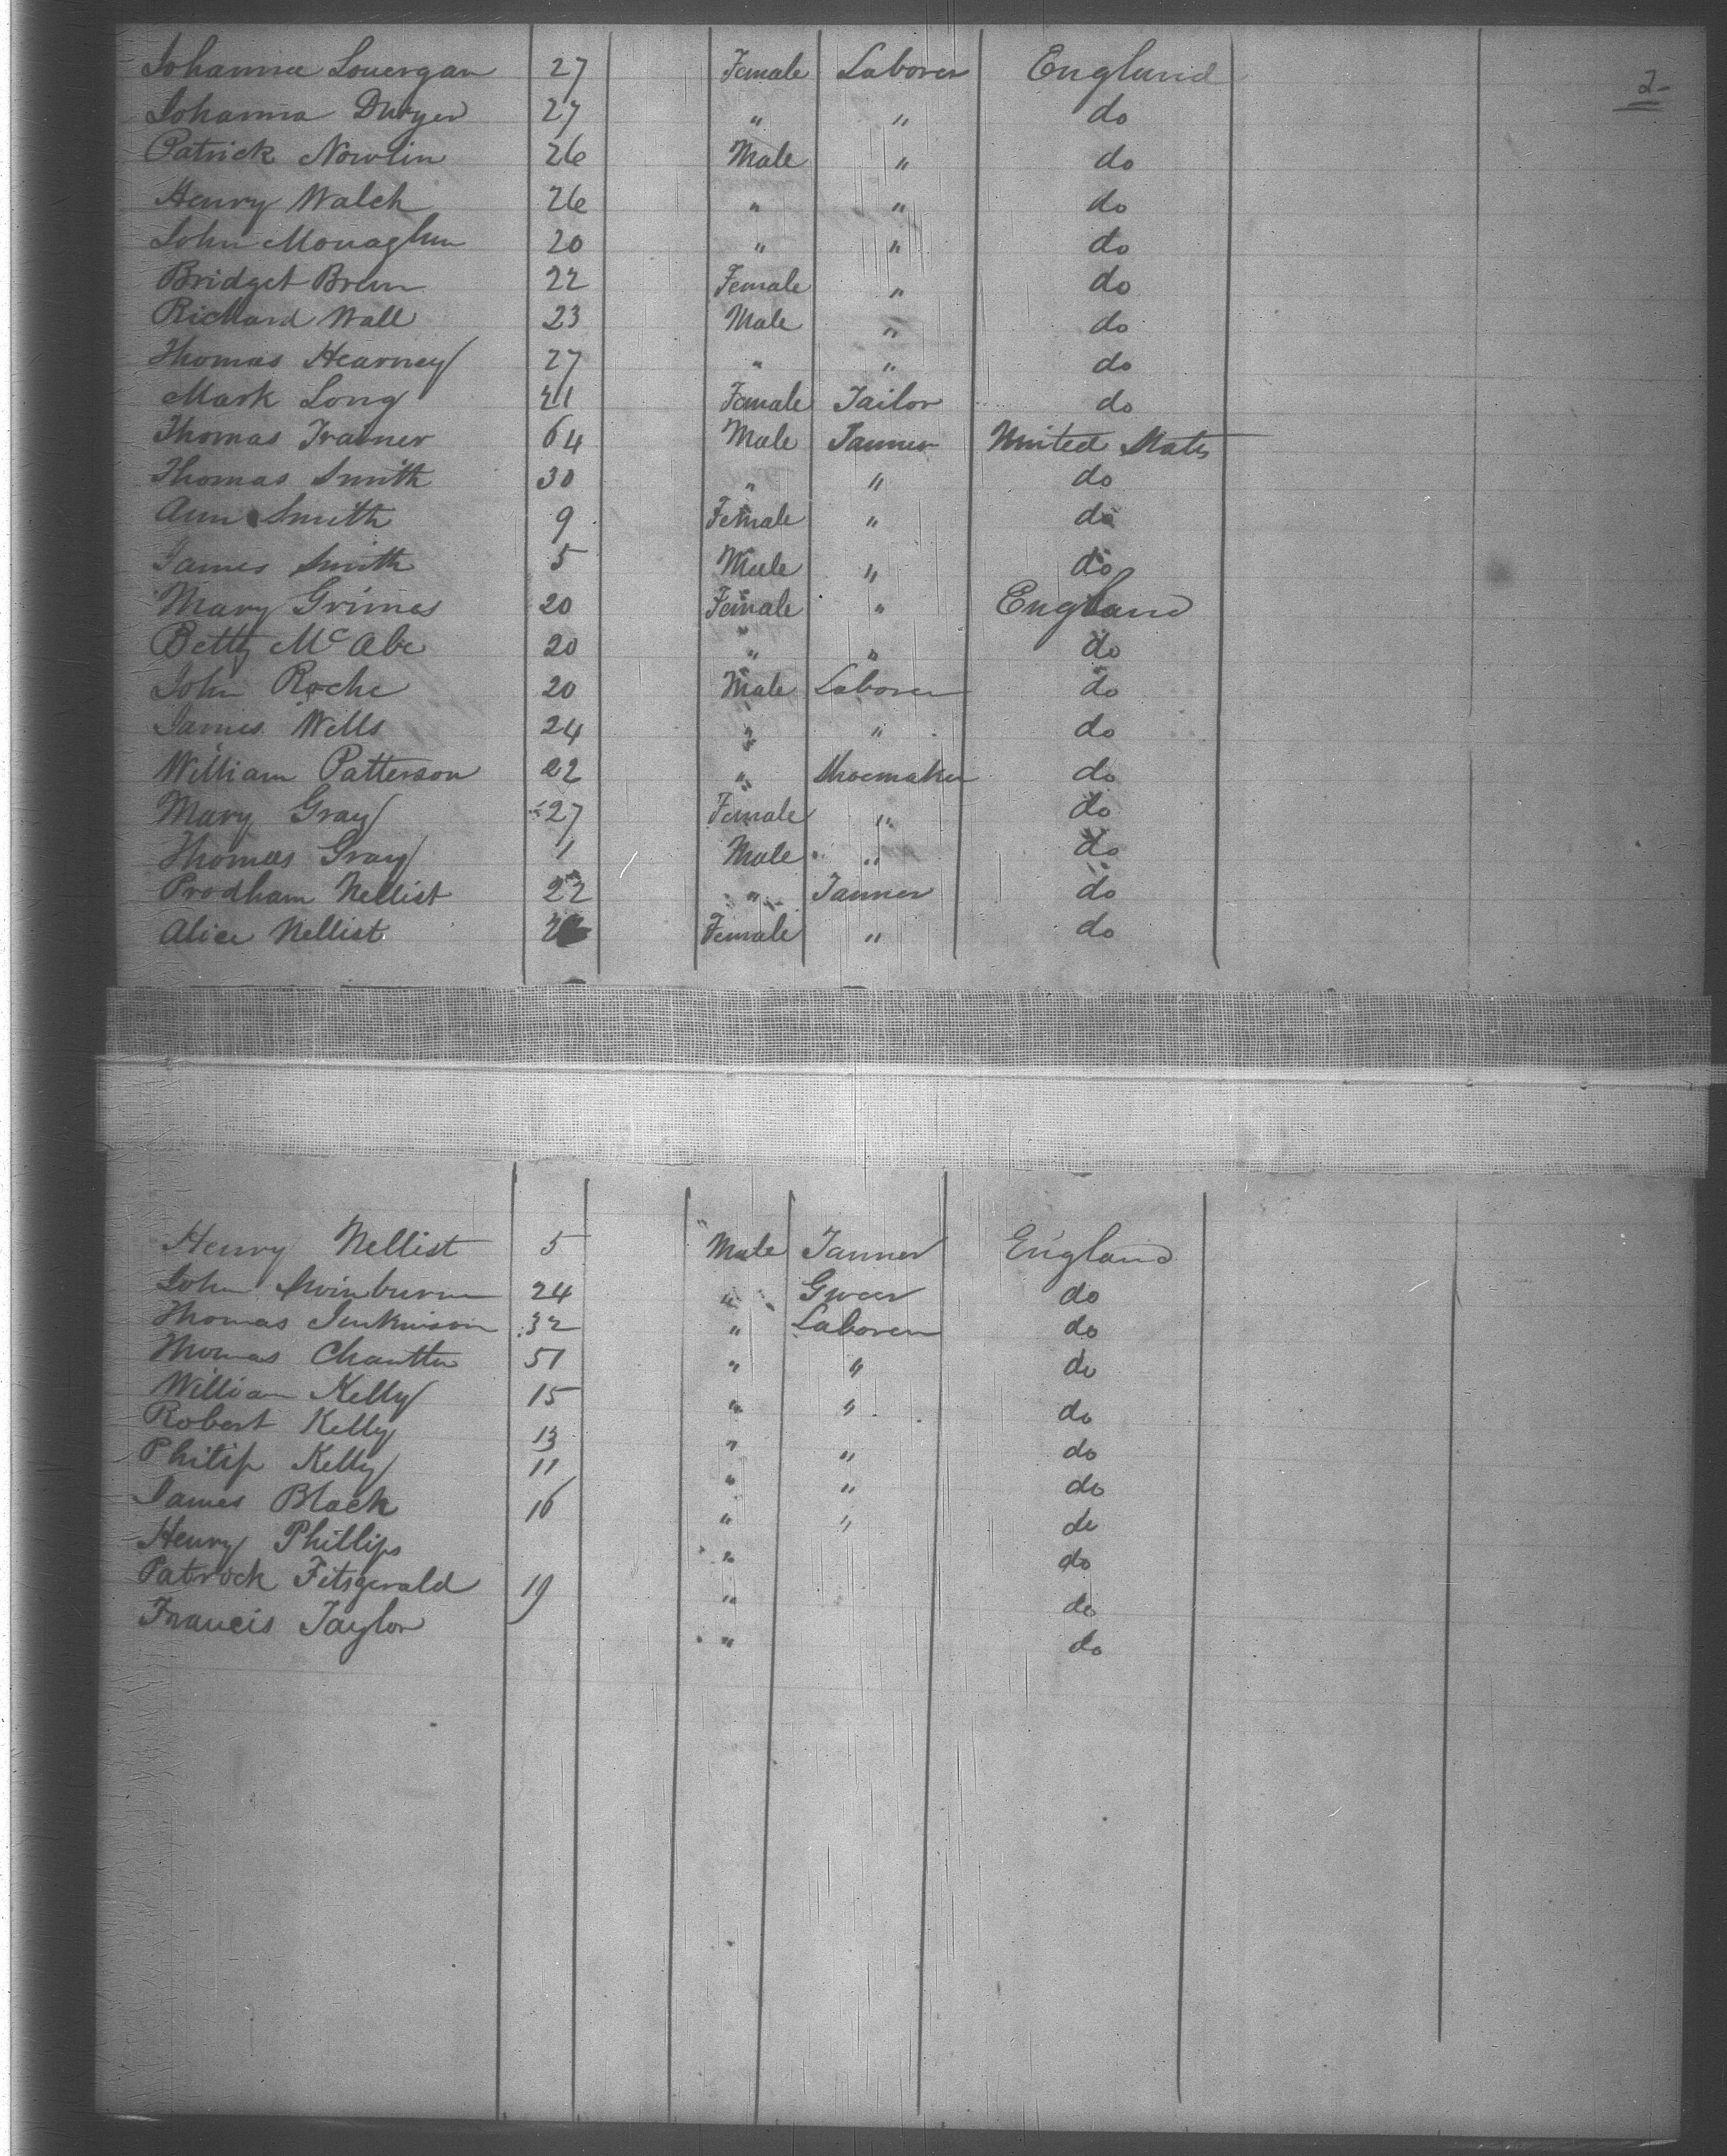 2
Johanna Louergan 27 Female Laborer England
Johanna Dwyer 27 " " do
Patrick Nowlin 26 Male " do
Henry Walch 26 " " do
John Monaghan 20 " " do
Bridget 22 Female " do
Richard Wall 23 Male " do
Thomas Hearney 27 " " do
Mark Long 21 Female Tailor do
Thomas Trainer 64 Male Tanner United States
Thomas Smith 30 " " do
Ann Smith 9 Female " do
James Smith 5 Male " do
Mary Grimes 20 Female " England
Betty McAbe 20 " " do
John Roche 20 Male Laborer do
James Wells 24 " " do
William Patterson 22 " Shoemaker do
Mary Gray 27 Female " do
Thomas Gray 1 Male " do
Prodham Nellist 22 " Tanner do
Alice Nellist Female " do
Henry Nellist 5 Male Tanner England
John Swinburn 24 " do
Thomas Jenkinson 32 " Laborer do
Thomas 51 " " do
William Kelly 15 " " do
Robert Kelly 13 " " do
Philip Kelly 11 " " do
James Black 16 " " do
Henry Phillips " do
Patrick Fitsgerald 19 " do
Francis Taylor " do